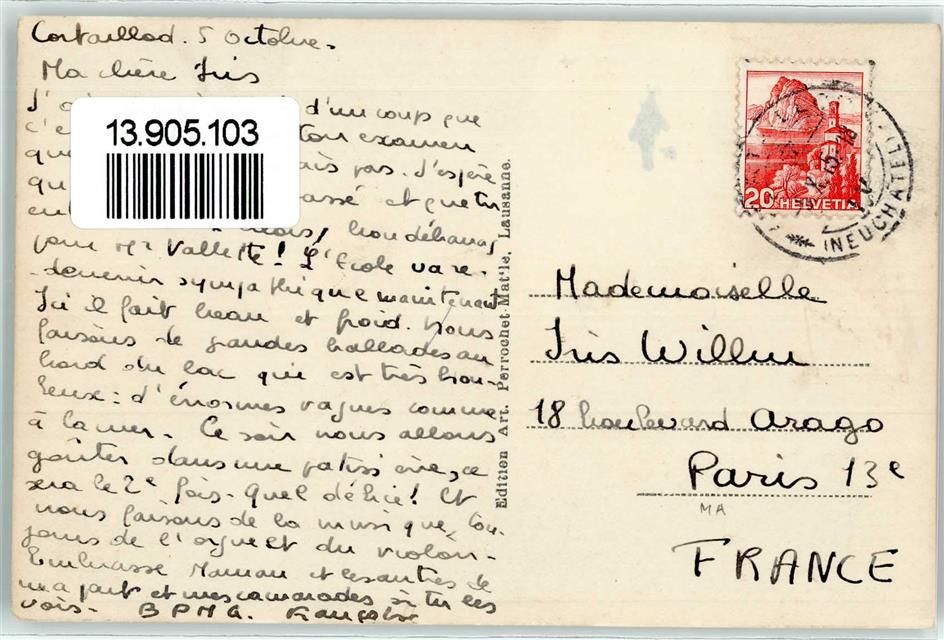 Cortaillod. 5 Octobre.
Ma chère Iris
J'  d'un coup que
c'e ton examen
que pas. J'espère
qu assé et que tu
en mois,
pour Mr Vallette! L'Ecole va re-
devenir sympathique maintenant
Ici il fait beau et froid. Nous
faisons de grandes ballades au
bord du lac qui est très hou-
leux: d'énormes vagues comme
à la mer. Ce soir nous allons
goûter dans une patisserie, ce
sera le 2e fois. Quel délice! Et
nous faisons de la musique, tou-
jours de l'orgue et du violon.
Embrasse Maman et les autres de
ma part et mes camarades si tu les
vois. B P M A. Françoise
13.905.103
Edition Art. Perrochet-Mat'le, Lausanne.
20 HELVETIA
(NEUCHÂTEL)
Mademoiselle
Iris Willm
18 boulevard Arago
Paris 13e
MA
FRANCE